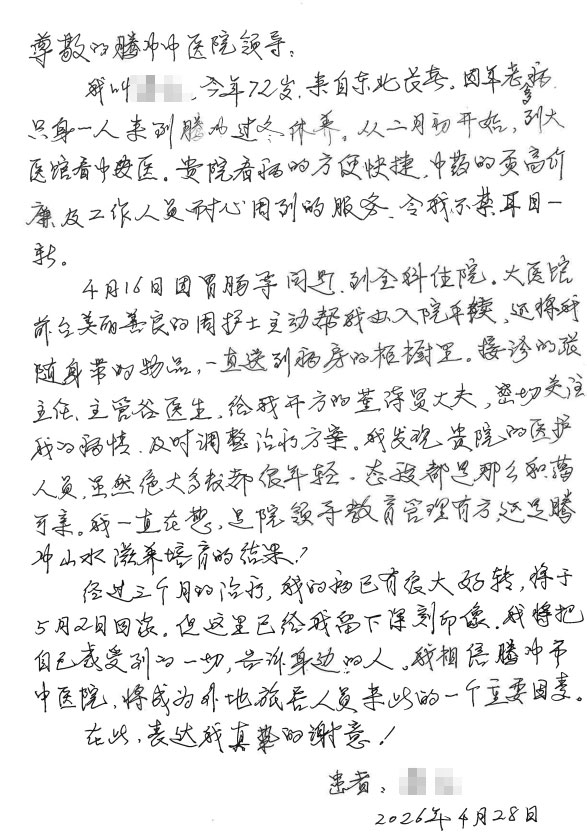 尊敬的腾冲中医院领导：
我叫 ，今年72岁，来自东北长春。因年老多病，
只身一人来到腾冲过冬休养。从二月初开始，到大
医馆看中医。贵院看病的方便快捷，中药的质高价
廉及工作人员耐心周到的服务，令我不禁耳目一
新。
4月16日因胃肠等问题，到全科住院。大医馆
前台美丽善良的周护士主动帮我办入院手续，还将我
随身带的物品，一直送到病房的柜橱里。接诊的张
主任、主管谷医生，给我开方的董 大夫，密切关注
我的病情，及时调整治疗方案。我发现贵院的医护
人员，虽然绝大多数都很年轻，态度都是那么和蔼
可亲。我一直在想，是院领导教育管理有方，还是腾
冲山水滋养培育的结果？
经过三个月的治疗，我的病已有很大好转，将于
5月2日回家。但这里已给我留下深刻印象。我将把
自己感受到的一切，告诉身边的人。我相信腾冲市
中医院，将成为外地旅居人员来此的一个重要因素。
在此，表达我真挚的谢意！
患者：
2026年4月28日